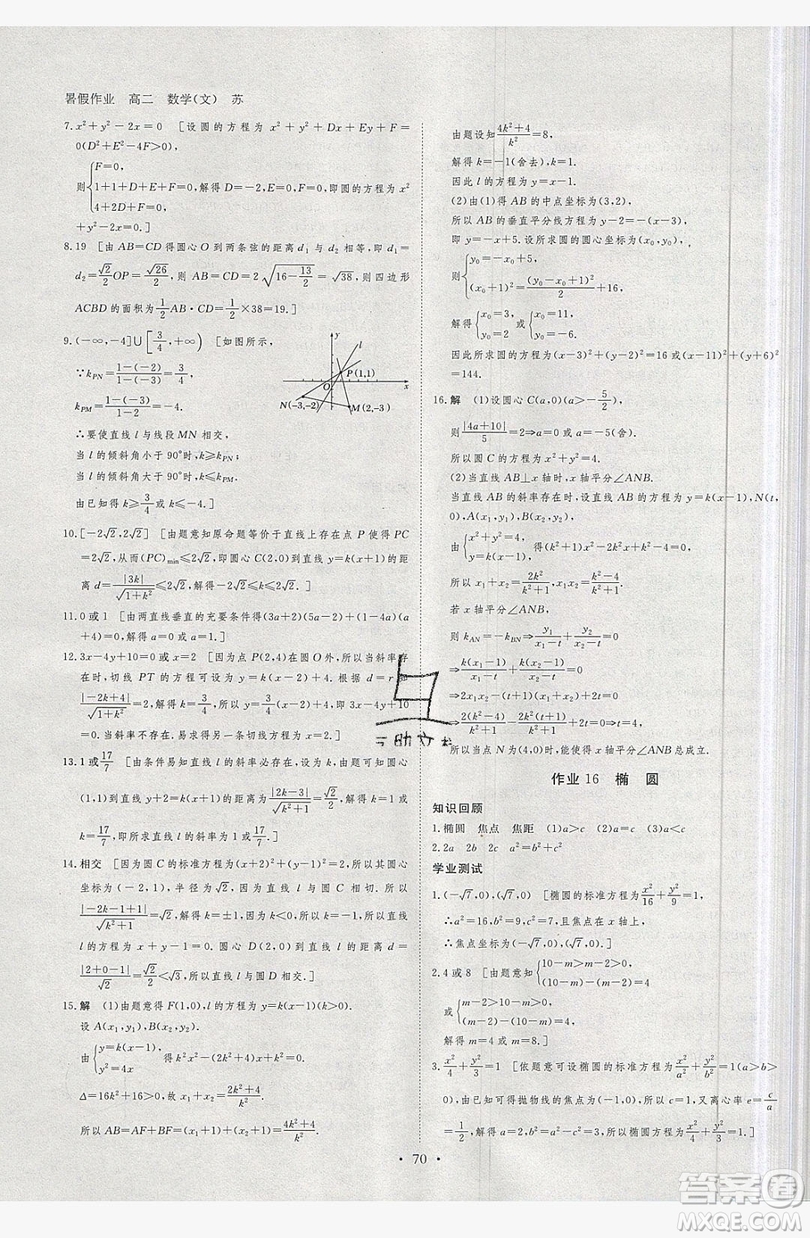 暑假作业　高二　数学(文)　苏
7. x²+y²-2x=0　[设圆的方程为 x²+y²+Dx+Ey+F=
0(D²+E²-4F>0),
则{F=0, 1+1+D+E+F=0, 4+2D+F=0, 解得 D=-2, E=0, F=0, 即可得圆的方程为 x²
+y²-2x=0.]
8. 19　[由 AB=CD 得圆心 O 到两条弦的距离 d₁=
d₂=√2/2 OP=√26/2, AB=CD=2√(16-13/2)=√38, 则四边形
ACBD 的面积为 1/2 AB·CD=1/2×38=19.]
9. (-∞,-4]∪[3/4,+∞)　[如图所示
y
l
P(1,1)
O
x
N(-3,-2)
M(2,-3)
∵k_PN=(1-(-2))/(1-(-3))=3/4,
k_PM=(1-(-3))/(1-2)=-4.
∴要使直线 l 与线段 MN 相交,
当 l 的倾斜角小于 90°时, k≥k_PN;
当 l 的倾斜角大于 90°时, k≤k_PM,
由已知得 k≥3/4 或 k≤-4.]
10. [-2√2,2√2]　[由题意知原命题等价于直线上存在点 P 使得 PC
=2√2, 从而(PC)min≤2√2, 即圆心 C(2,0)到直线 y=k(x+1)的
距离 d=|3k|/√(1+k²)≤2√2, 解得-2√2≤k≤2√2.]
11. 0 或 1　[由两直线垂直的充要条件得(3a+2)(5a-2)+(1-4a)(a
+4)=0, 解得 a=0 或 a=1.]
12. 3x-4y+10=0 或 x=2　[因为点 P(2,4)在圆 O 外, 所以当斜率存
在时, 切线 PT 的方程可设为 y=k(x-2)+4, 根据 d=r 即
|-2k+4|/√(1+k²)=2, 解得 k=3/4, 所以 y=3/4(x-2)+4, 即 3x-4y+10=
0. 当斜率不存在时, 易求得另一条切线方程为 x=2.]
13. 1 或 17/7　[由条件易知直线 l 的斜率必存在, 设为 k. 圆心
(1,1)到直线 y+2=k(x+1)的距离为 |2k-3|/√(k²+1)=√2/2, 解得 k=1 或 k
=17/7, 即所求直线 l 的斜率为 1 或 17/7.]
14. 相交　[由题意知圆 C 的标准方程为(x+2)²+(y-1)²=2, 所以其圆心
坐标为(-2,1), 半径为√2, 因为直线 l 与圆 C 相切. 所以
|-2k-1+1|/√(k²+1)=√2, 解得 k=±1, 因为 k<0, 所以 k=-1, 所以直线
l 的方程为 x+y-1=0. 圆心 D(2,0)到直线 l 的距离 d=
|2+0-1|/√2=√2/2<√3, 所以直线 l 与圆 D 相交.]
15. 解　(1)由题意得 F(1,0), l 的方程为 y=k(x-1)(k>0).
设 A(x₁,y₁), B(x₂,y₂),
由{y=k(x-1), y²=4x 得 k²x²-(2k²+4)x+k²=0.
Δ=16k²+16>0, 故 x₁+x₂=(2k²+4)/k².
所以 AB=AF+BF=(x₁+1)+(x₂+1)=(4k²+4)/k².
由题设知(4k²+4)/k²=8,
解得 k=-1(舍去), k=1.
因此 l 的方程为 y=x-1.
(2)由(1)得 AB 的中点坐标为(3,2),
所以 AB 的垂直平分线方程为 y-2=-(x-3),
即 y=-x+5. 设所求圆的圆心坐标为(x₀,y₀),
则{y₀=-x₀+5, (x₀+1)²=(y₀-x₀+1)²/2+16,
解得{x₀=3, y₀=2 或{x₀=11, y₀=-6.
因此所求圆的方程为(x-3)²+(y-2)²=16 或(x-11)²+(y+6)²
=144.
16. 解　(1)设圆心 C(a,0)(a>-5/2),
则|4a+10|/5=2⇒a=0 或 a=-5(舍).
所以圆 C 的方程为 x²+y²=4.
(2)当直线 AB⊥x 轴时, x 轴平分∠ANB.
当直线 AB 的斜率存在时, 设直线 AB 的方程为 y=k(x-1), N(t,
0), A(x₁,y₁), B(x₂,y₂),
由{x²+y²=4, y=k(x-1) 得(k²+1)x²-2k²x+k²-4=0,
所以 x₁+x₂=2k²/(k²+1), x₁x₂=(k²-4)/(k²+1).
若 x 轴平分∠ANB,
则 k_AN=-k_BN⇒y₁/(x₁-t)+y₂/(x₂-t)=0
⇒k(x₁-1)/(x₁-t)+k(x₂-1)/(x₂-t)=0
⇒2x₁x₂-(t+1)(x₁+x₂)+2t=0
⇒2(k²-4)/(k²+1)-2k²(t+1)/(k²+1)+2t=0⇒t=4,
所以当点 N 为(4,0)时, 能使得∠ANM=∠BNM 总成立.
作业 16　椭　圆
知识回顾
1. 椭圆　焦点　焦距　(1)a>c　(2)a=c　(3)a<c
2. 2a　2b　2c　(0,1)　c²=a²-b²
学业测试
1. (-√7,0),(√7,0)　[椭圆的标准方程为 x²/16+y²/9=1,
∴a²=16, b²=9, c²=7, 且焦点在 x 轴上,
∴焦点坐标为(-√7,0),(√7,0).]
2. 4 或 8　[由题意知{10-m>m-2>0, (10-m)-(m-2)=4
或{m-2>10-m>0, (m-2)-(10-m)=4,
解得 m=4 或 m=8.]
3. x²/4+y²/3=1　[依题意可设椭圆的标准方程为 x²/a²+y²/b²=1(a>b>
0), 由已知可得抛物线的焦点为(-1,0), 所以 c=1, 又离心率 e=c/a
=1/2, 解得 a=2, b²=a²-c²=3, 所以椭圆方程为 x²/4+y²/3=1.]
• 70 •
答案圈
MXQE.COM